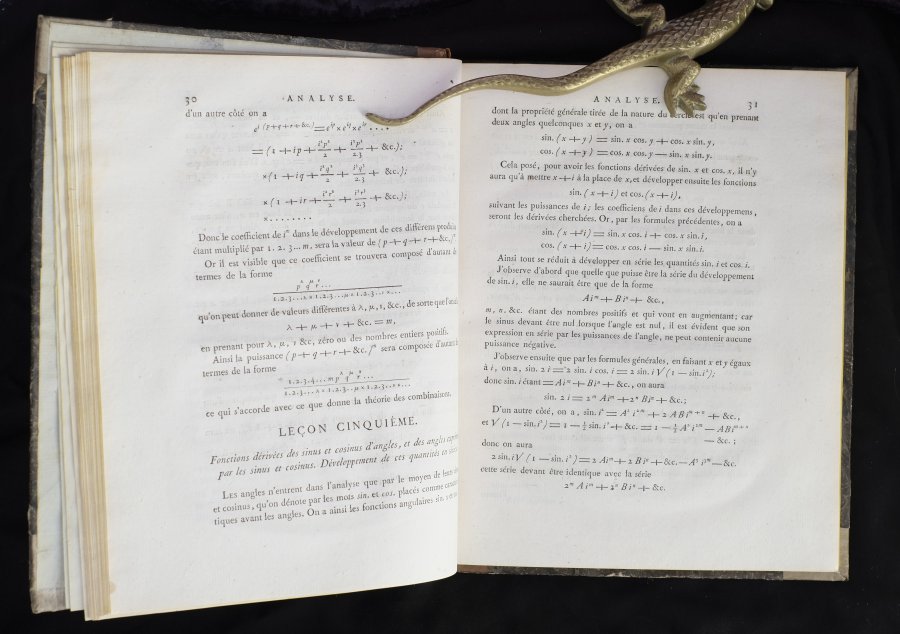 30 ANALYSE.
d'un autre côté on a
= (1 + ip + i²p²/2 + i³p³/2.3 + &c.);
× (1 + iq + i²q²/2 + i³q³/2.3 + &c.);
× (1 + ir + i²r²/2 + i³r³/2.3 + &c.);
× . . . . . . . .
Donc le coefficient de iᵐ dans le développement de ces différens
étant multiplié par 1. 2. 3 ... m, sera la valeur de (p + q + r + &c.)ᵐ
Or il est visible que ce coefficient se trouvera composé d'autant de
termes de la forme
qu'on peut donner de valeurs différentes à λ, μ, ν, &c., de sorte que
λ + μ + ν + &c. = m,
en prenant pour λ, μ, ν &c, zéro ou des nombres entiers positifs.
Ainsi la puissance (p + q + r + &c.)ᵐ sera composée d'autant
termes de la forme
ce qui s'accorde avec ce que donne la théorie des combinaisons.
LEÇON CINQUIÈME.
Fonctions dérivées des sinus et cosinus d'angles, et des angles
par les sinus et cosinus. Développement de ces quantités en
LES angles n'entrent dans l'analyse que par le moyen de leurs
et cosinus, qu'on dénote par les mots sin. et cos. placés comme
tiques avant les angles. On a ainsi les fonctions angulaires sin.
ANALYSE. 31
dont la propriété générale tirée de la nature du cercle est qu'en prenant
deux angles quelconques x et y, on a
sin. (x + y) = sin. x cos. y + cos. x sin. y,
cos. (x + y) = cos. x cos. y — sin. x sin. y.
Cela posé, pour avoir les fonctions dérivées de sin. x et cos. x, il n'y
aura qu'à mettre x + i à la place de x, et développer ensuite les fonctions
sin. (x + i) et cos. (x + i),
suivant les puissances de i; les coefficiens de i dans ces développemens,
seront les dérivées cherchées. Or, par les formules précédentes, on a
sin. (x + i) = sin. x cos. i + cos. x sin. i,
cos. (x + i) = cos. x cos. i — sin. x sin. i.
Ainsi tout se réduit à développer en série les quantités sin. i et cos. i.
J'observe d'abord que quelle que puisse être la série du développement
de sin. i, elle ne saurait être que de la forme
Aiᵐ + Biⁿ + &c.,
m, n, &c. étant des nombres positifs et qui vont en augmentant; car
le sinus devant être nul lorsque l'angle est nul, il est évident que son
expression en série par les puissances de l'angle, ne peut contenir aucune
puissance négative.
J'observe ensuite que par les formules générales, en faisant x et y égaux
à i, on a, sin. 2 i = 2 sin. i cos. i = 2 sin. i √(1 — sin. i²);
donc sin. i étant = Aiᵐ + Biⁿ + &c., on aura
sin. 2 i = 2ᵐ Aiᵐ + 2ⁿ Biⁿ + &c.;
D'un autre côté, on a, sin. i² = A² i²ᵐ + 2 ABiᵐ⁺ⁿ + &c.,
et √(1 — sin. i²) = 1 — ½ sin. i² + &c. = 1 — ½ A² i²ᵐ — ABiᵐ⁺ⁿ
— &c.;
donc on aura
2 sin. i √(1 — sin. i²) = 2 Aiᵐ + 2 Biⁿ + &c. — A³ i³ᵐ — &c.
cette série devant être identique avec la série
2ᵐ Aiᵐ + 2ⁿ Biⁿ + &c.